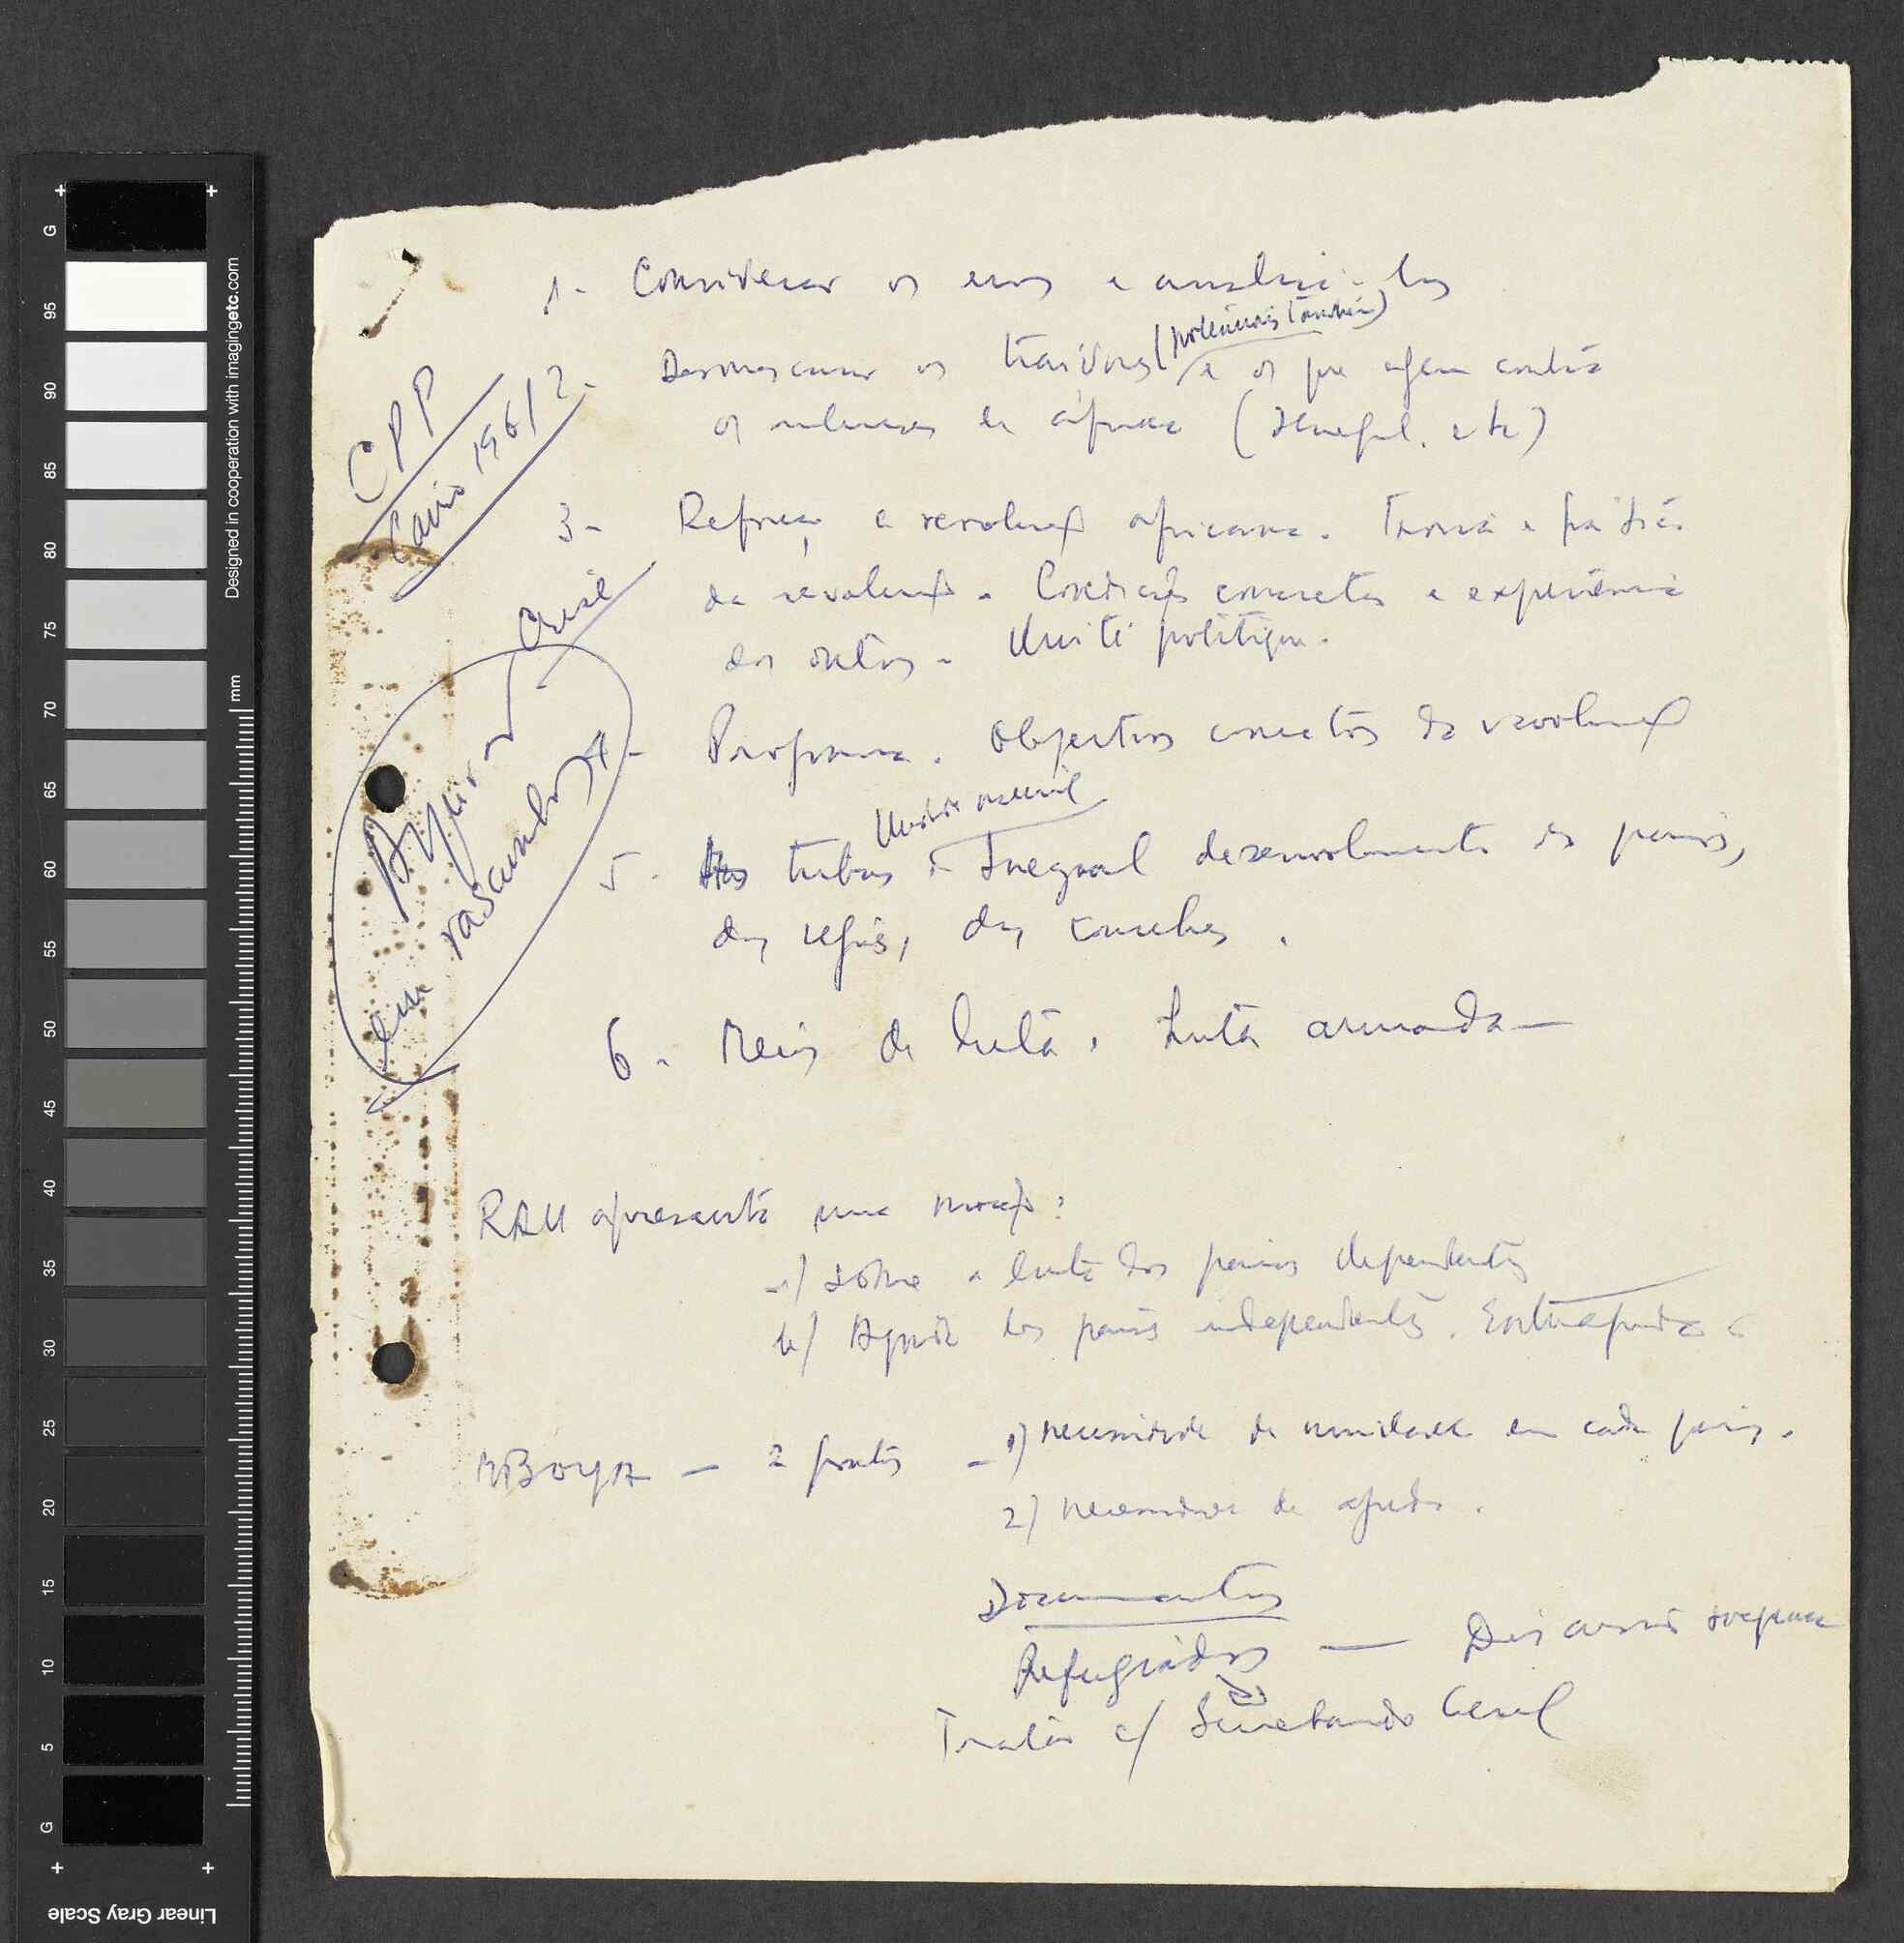 1- Considerar os erros e analisá-los
2- Desmascarar os traidores (potenciais também) e os que agem contra
os interesses da África (Senegal, etc)
3- Reforçar a revolução africana. Teoria e prática
da revolução. Condições concretas e experiência
dos outros. Unité politique.
4- Programa. Objectivos concretos da revolução
Unidade nacional
5- tribos Integral desenvolvimento do país,
das regiões, dos concelhos.
6- Meios de luta. Luta armada—
CPP
Cairo 1961
Amílcar
Cabral
em rascunho
RAU apresenta uma moção:
a) sobre a luta dos países dependentes
b) Ajuda dos países independentes.
MBOYA — 2 pontos - 1) necessidade de unidade em cada país.
2) necessidade de ajuda.
Documentos
Refugiados — Discurso
Tratar c/ Secretariado Geral
G 95 90 85 80 75 70 65 60 55 50 45 40 35 30 25 20 15 10 5 G
mm
Designed in cooperation with imagingetc.com
Linear Gray Scale